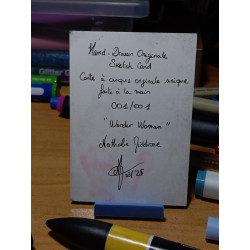 Hand-Drawn Originale
Sketch Card
Carte à croquis originale unique
faite à la main
001/001
"Wonder Woman"
Nathalie